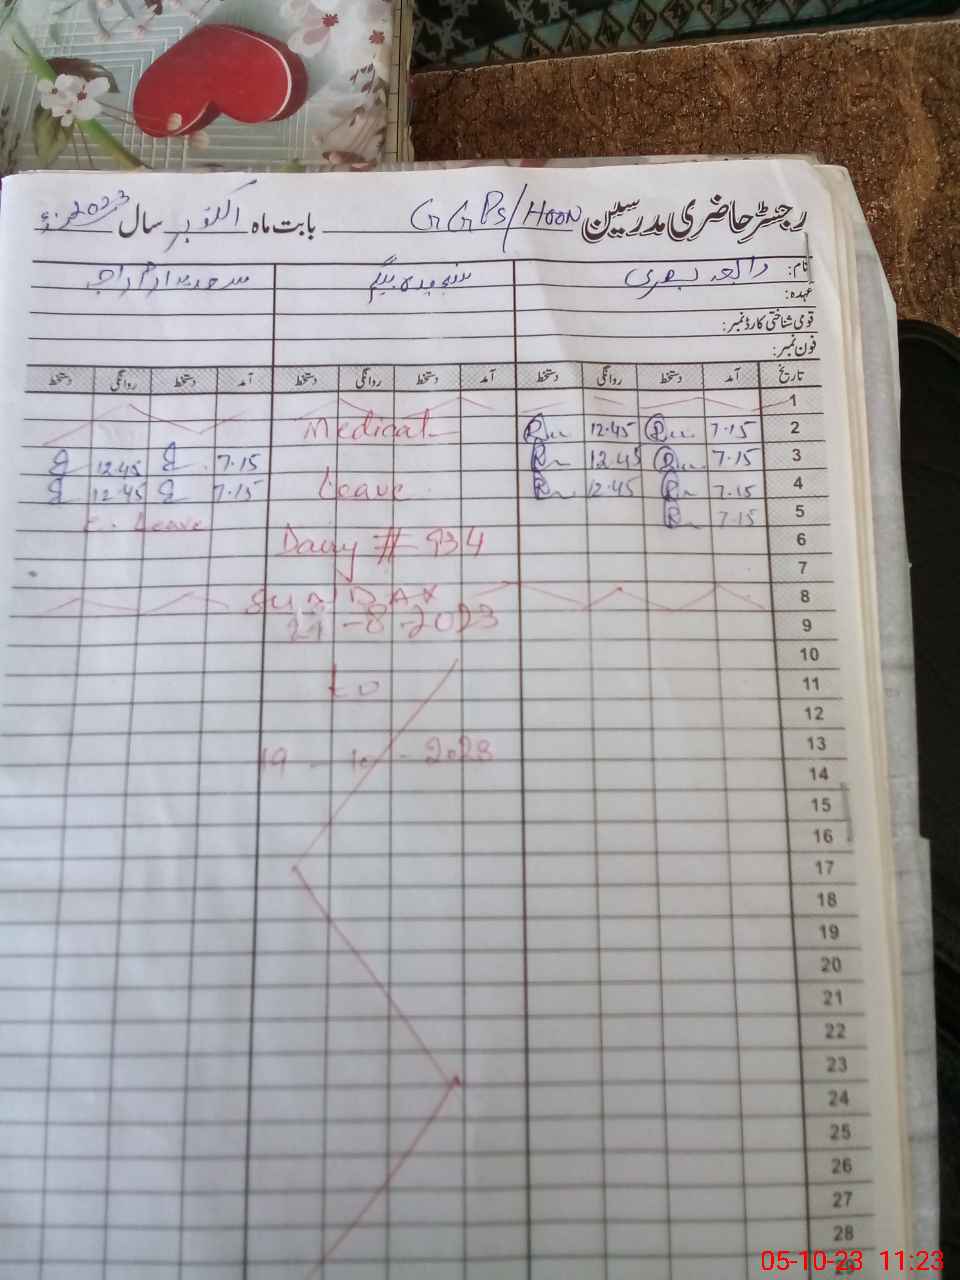 رجسٹر حاضری مدرسین GGPS/HOON بابت ماہ اکتوبر سال 2023ء
نام: رابعہ بصری
عہدہ:
قومی شناختی کارڈ نمبر:
فون نمبر:
تاریخ آمد دستخط روانگی دستخط آمد دستخط روانگی دستخط آمد دستخط روانگی دستخط
1
2 7.15 12.45 Medical
3 7.15 12.45 7.15 12.45
4 7.15 12.45 Leave 7.15 12.45
5 7.15 Leave
6 # 934
7
8 SUNDAY
9 -8-2023
10
11 to
12
13 19-10-2023
14
15
16
17
18
19
20
21
22
23
24
25
26
27
28
29
05-10-23 11:23